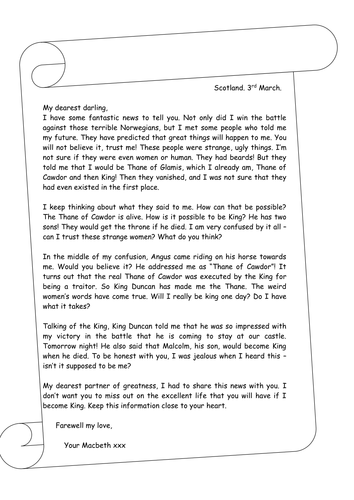 Scotland. 3rd March.
My dearest darling,
I have some fantastic news to tell you. Not only did I win the battle
against those terrible Norwegians, but I met some people who told me
my future. They have predicted that great things will happen to me. You
will not believe it, trust me! These people were strange, ugly things. I'm
not sure if they were even women or human. They had beards! But they
told me that I would be Thane of Glamis, which I already am, Thane of
Cawdor and then King! Then they vanished, and I was not sure that they
had even existed in the first place.
I keep thinking about what they said to me. How can that be possible?
The Thane of Cawdor is alive. How is it possible to be King? He has two
sons! They would get the throne if he died. I am very confused by it all –
can I trust these strange women? What do you think?
In the middle of my confusion, Angus came riding on his horse towards
me. Would you believe it? He addressed me as "Thane of Cawdor"! It
turns out that the real Thane of Cawdor was executed by the King for
being a traitor. So King Duncan has made me the Thane. The weird
women's words have come true. Will I really be king one day? Do I have
what it takes?
Talking of the King, King Duncan told me that he was so impressed with
my victory in the battle that he is coming to stay at our castle.
Tomorrow night! He also said that Malcolm, his son, would become King
when he died. To be honest with you, I was jealous when I heard this –
isn't it supposed to be me?
My dearest partner of greatness, I had to share this news with you. I
don't want you to miss out on the excellent life that you will have if I
become King. Keep this information close to your heart.
Farewell my love,
Your Macbeth xxx